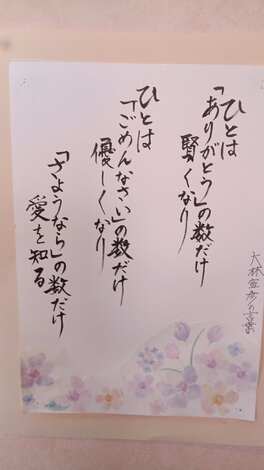 大林宣彦の言葉
ひとは
「ありがとう」の数だけ
賢くなり
ひとは
「ごめんなさい」の数だけ
優しくなり
「さようなら」の数だけ
愛を知る